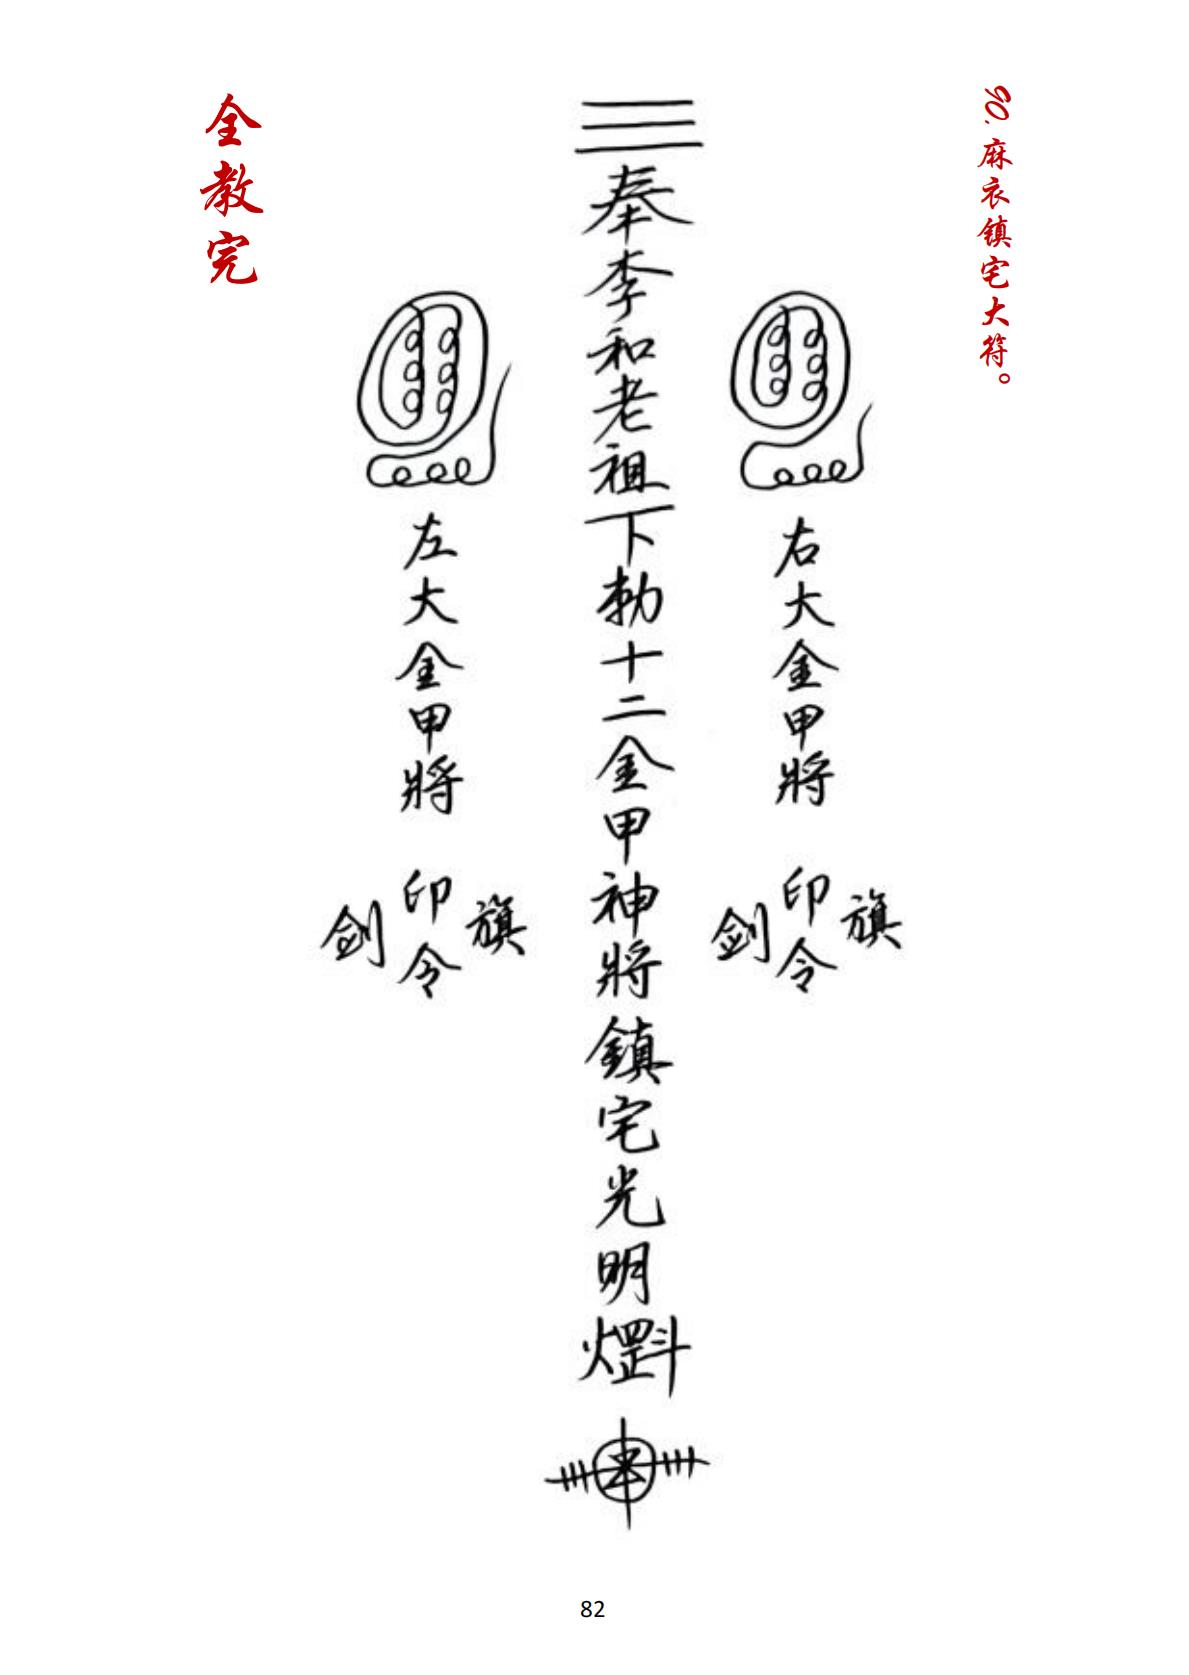 90.麻衣镇宅大符。
右大金甲將
印
剑 旗
令
奉李和老祖下勅十二金甲神將鎮宅光明
左大金甲將
印
剑 旗
令
全教完
82